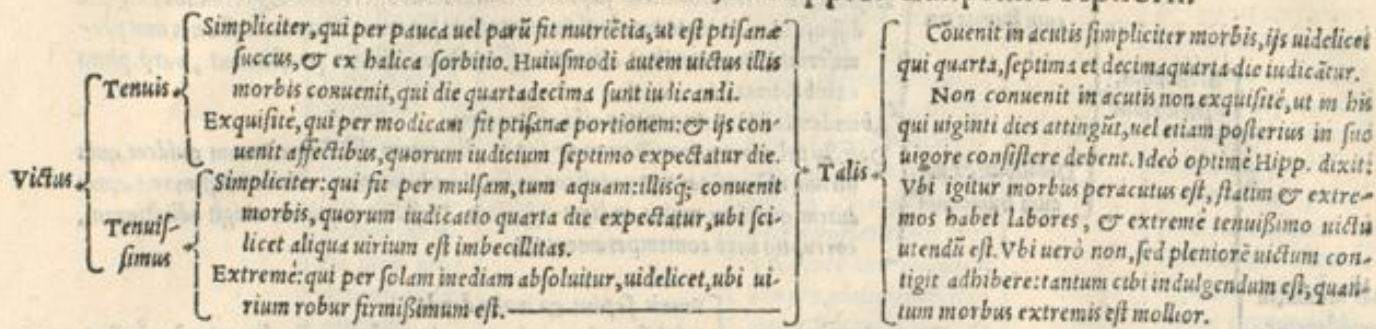 Simpliciter, qui per pauca uel parũ fit nutriẽtia, ut est ptisanæ
succus, & ex halica sorbitio. Huiusmodi autem uictus illis
morbis conuenit, qui die quartadecima sunt iudicandi.
Tenuis
Exquisitè, qui per modicam fit ptisanæ portionem: & ijs con-
uenit affectibus, quorum iudicium septimo expectatur die.
Victus
Simpliciter: qui fit per mulsam, tum aquam: illisq́; conuenit
morbis, quorum iudicatio quarta die expectatur, ubi sci-
licet aliqua uirium est imbecillitas.
Tenuis-
simus
Extremè: qui per solam inediam absoluitur, uidelicet, ubi ui-
rium robur firmißimum est.
Talis
Cõuenit in acutis simpliciter morbis, ijs uidelicet
qui quarta, septima et decimaquarta die iudicãtur.
Non conuenit in acutis non exquisitè, ut in his
qui uiginti dies attingũt, uel etiam posterius in suo
uigore consistere debent. Ideò optimè Hipp. dixit:
Vbi igitur morbus peracutus est, statim & extre-
mos habet labores, & extremè tenuißimo uictu
utendũ est. Vbi uerò non, sed pleniorẽ uictum con-
tigit adhibere: tantum cibi indulgendum est, quan-
tum morbus extremis est mollior.